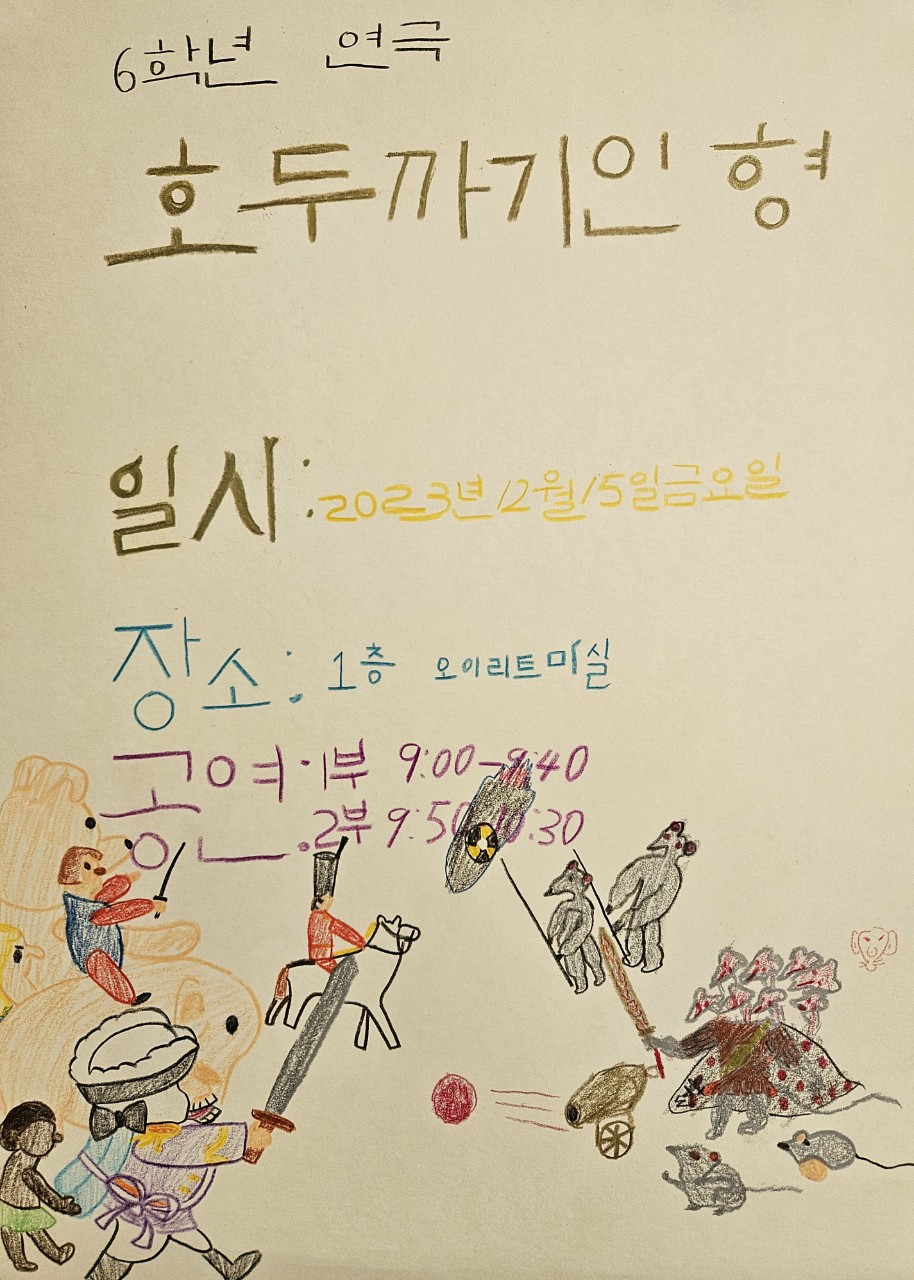 6학년 연극
호두까기인형
일시: 2023년 12월 15일 금요일
장소: 1층 오이리트미실
공연 .1부 9:00-9:40
.2부 9:50-10:30